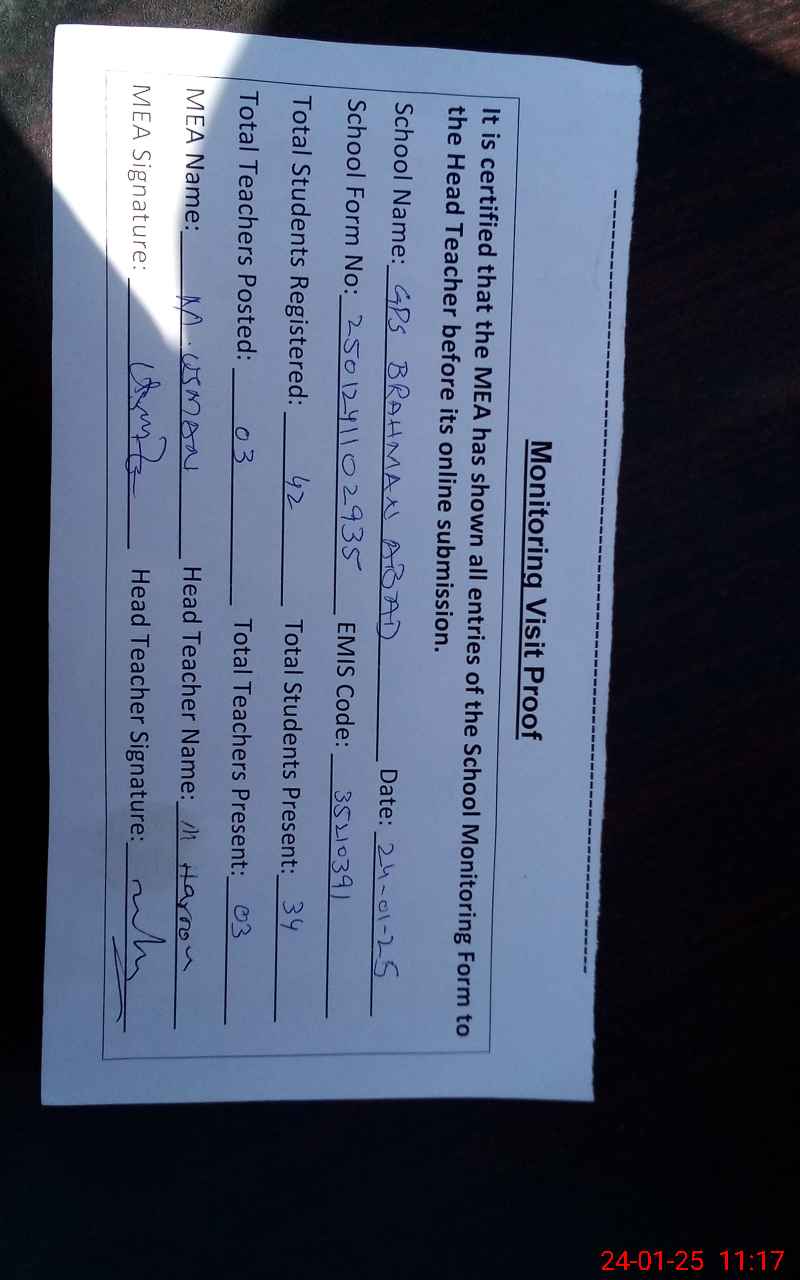 Monitoring Visit Proof
It is certified that the MEA has shown all entries of the School Monitoring Form to
the Head Teacher before its online submission.
School Name: GPS BRAHMAN ABAD Date: 24-01-25
School Form No: 2501241102935 EMIS Code: 35210391
Total Students Registered: 42 Total Students Present: 34
Total Teachers Posted: 03 Total Teachers Present: 03
MEA Name: M. USMAN Head Teacher Name: M Haroon
MEA Signature: Head Teacher Signature:
24-01-25 11:17